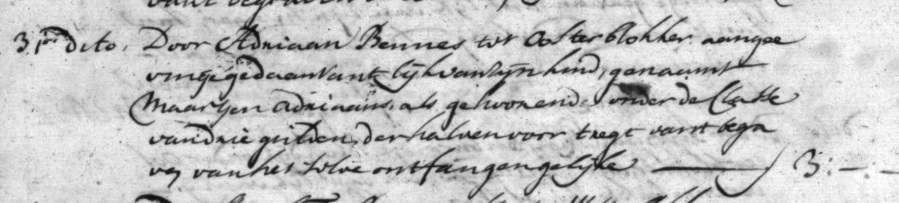 31en dito, Door Adriaan Bennes tot Oosterblokker aangee
vinge gedaan vant lijk van zyn kind, genaamt
Maartjen Adriaans, als gehoorende onder de Classe
van drie gulden, derhalven voor t regt vant begra
ven van het zelve ontfangen gelijke — 3:—.